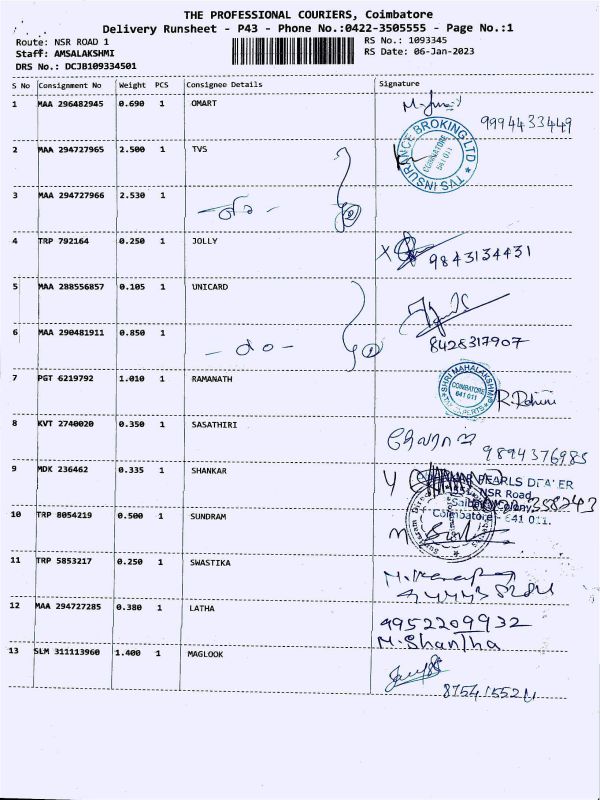 THE PROFESSIONAL COURIERS, Coimbatore
Delivery Runsheet - P43 - Phone No.:0422-3505555 - Page No.:1
Route: NSR ROAD 1
RS No.: 1093345
Staff: AMSALAKSHMI
RS Date: 06-Jan-2023
DRS No.: DCJB109334501
S No Consignment No Weight PCS Consignee Details Signature
1 MAA 296482945 0.690 1 OMART
9994433449
2 MAA 294727965 2.500 1 TVS
TVS INSURANCE BROKING LTD
COIMBATORE
641 011
3 MAA 294727966 2.530 1
4 TRP 792164 0.250 1 JOLLY
9843134431
5 MAA 288556857 0.105 1 UNICARD
6 MAA 290481911 0.850 1
- do -
8428317907
7 PGT 6219792 1.010 1 RAMANATH
SHRI MAHALAKSHMI
COIMBATORE
641 011
8 KVT 2740020 0.350 1 SASATHIRI
9894376985
9 MDK 236462 0.335 1 SHANKAR
PEARLS DEALER
NSR Road,
Coimbatore - 641 011.
10 TRP 8054219 0.500 1 SUNDRAM
11 TRP 5853217 0.250 1 SWASTIKA
12 MAA 294727285 0.380 1 LATHA
4952209932
M.Shantha
13 SLM 311113960 1.400 1 MAGLOOK